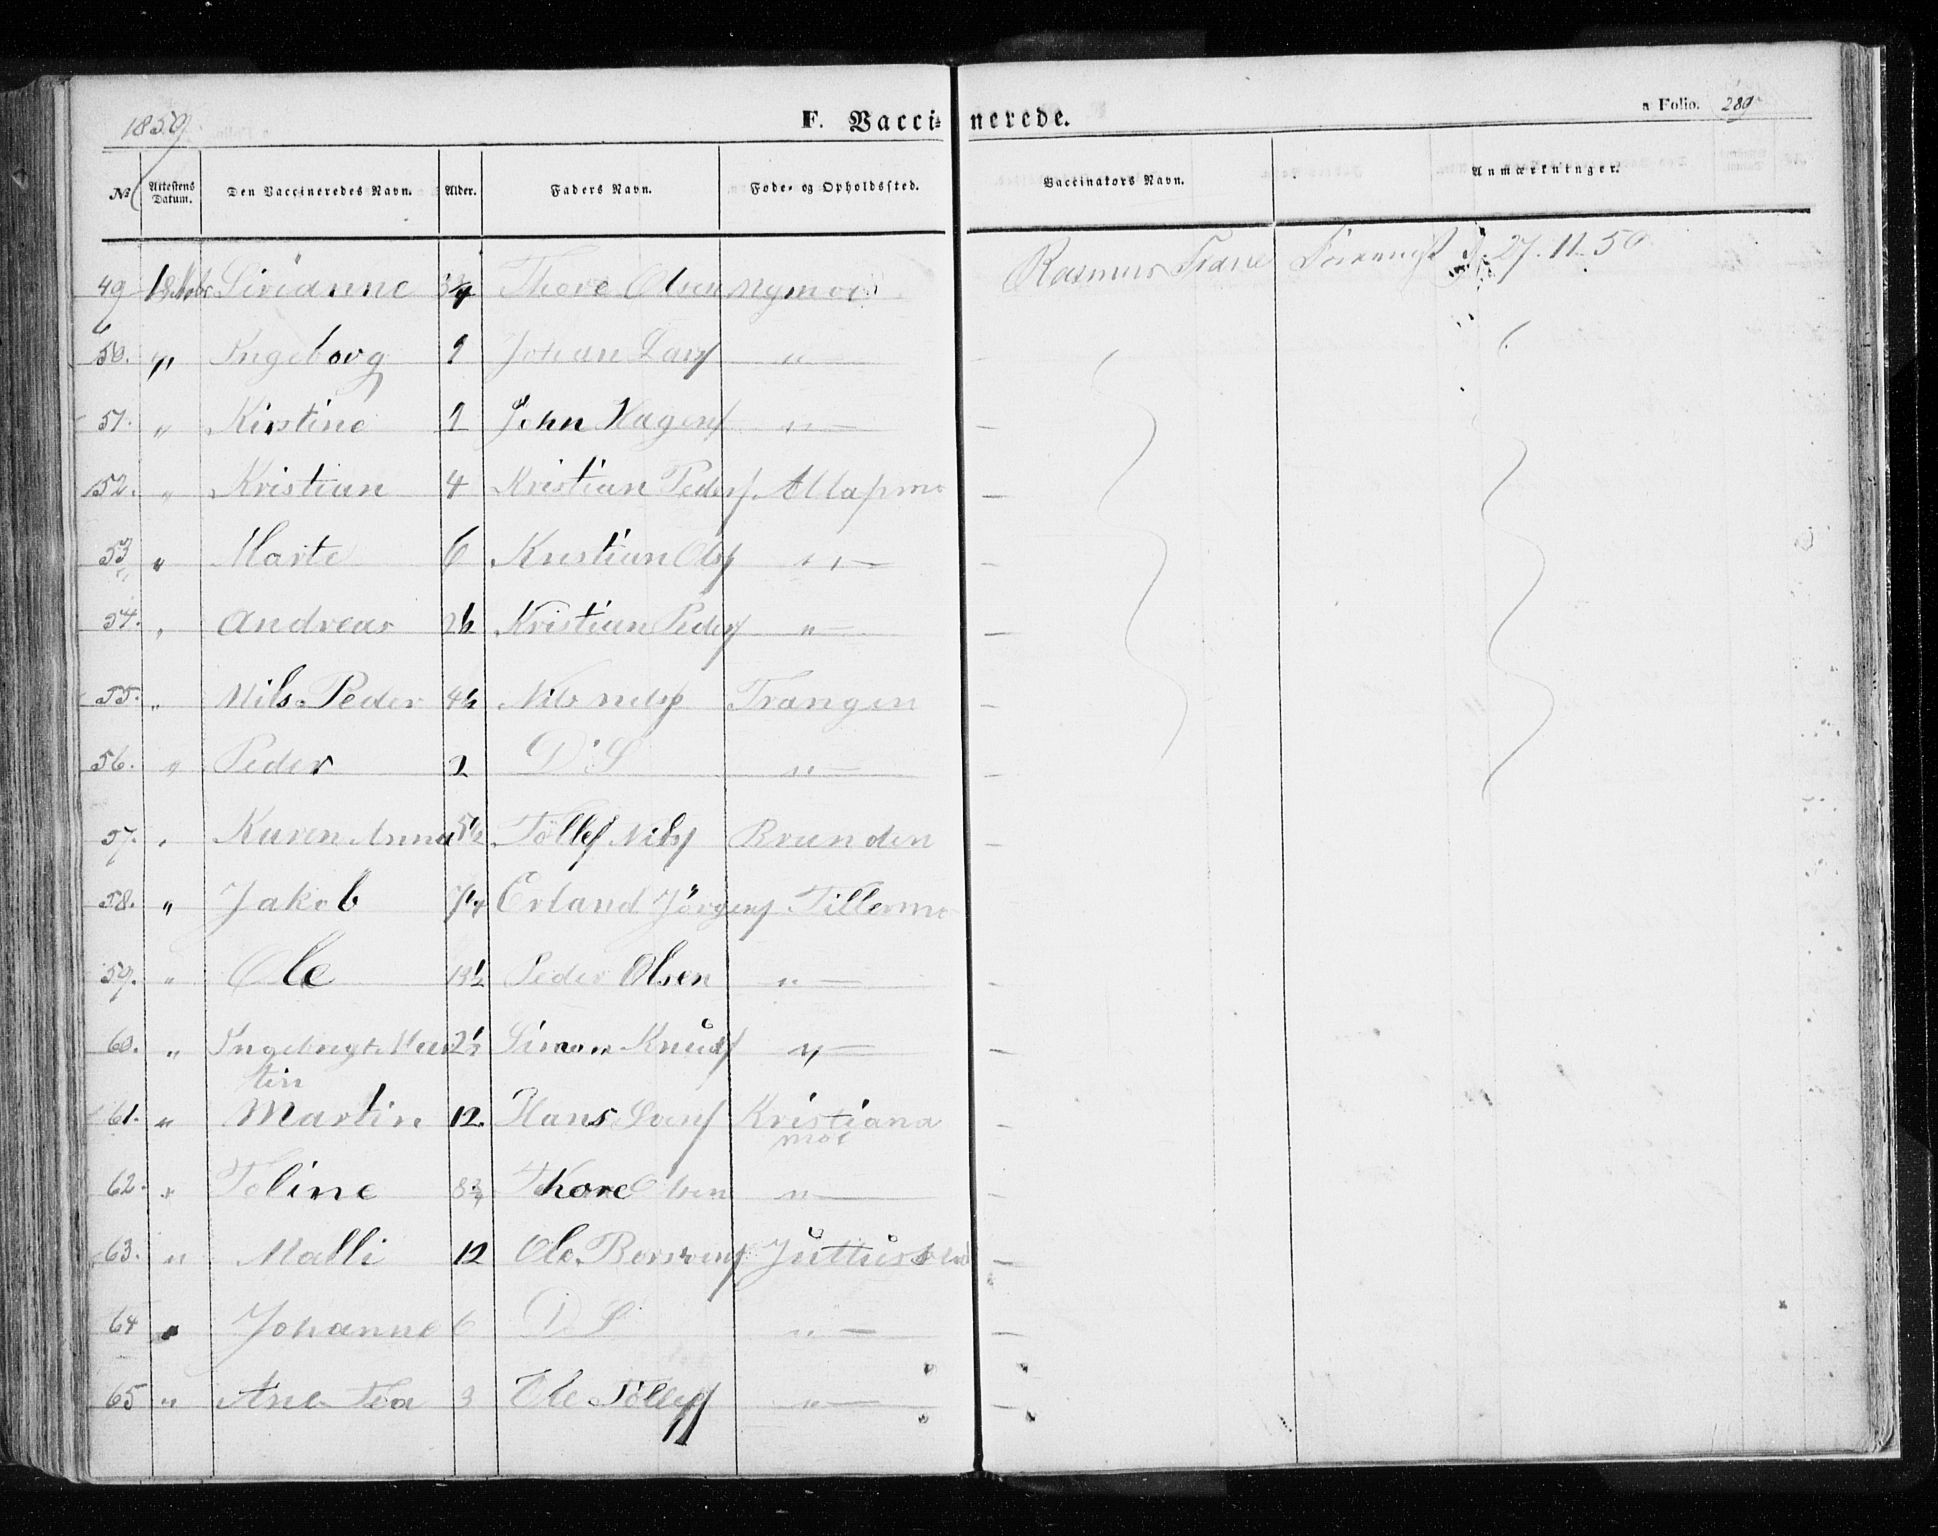 1859.
F. Vaccinerede.
a Folio. 289
No Attestens Datum. Den Vaccineredes Navn. Alder. Faders Navn. Føde- og Opholdssted. Vaccinators Navn. Anmærkninger.
49 Sirianne 3/4 Thore Olsen Nymoe Rasmus Trane 27.11.50
50. " Ingeborg 1 Johan Larss "
51. " Kirstine 1 John Hagens "
52. " Kristian 4 Kristian Peders. Allapmo
53 " Marte 6 Kristian Olss "
54. " Andreas 2½ Kristian Peders "
55. " Nils Peder 4½ Nils Nilss Trangen
56. " Peder 2 D S "
57. " Karen Anna 5½ Töllef Nilss Brunden
58. " Jakob 7¼ Erland Jörgens Tillermo
59. " Ole 13½ Peder Olsen "
60. " Ingebrigt Mar 2½ Simon Knuds "
tin
61. " Martin 12. Hans Kristiana
moe
62. " Toline 8¾ Thore Olsen "
63. " Malli 12 Ole
64 " Johanne 6 D S "
65 " Ane Tea 3 Ole Töllefs "